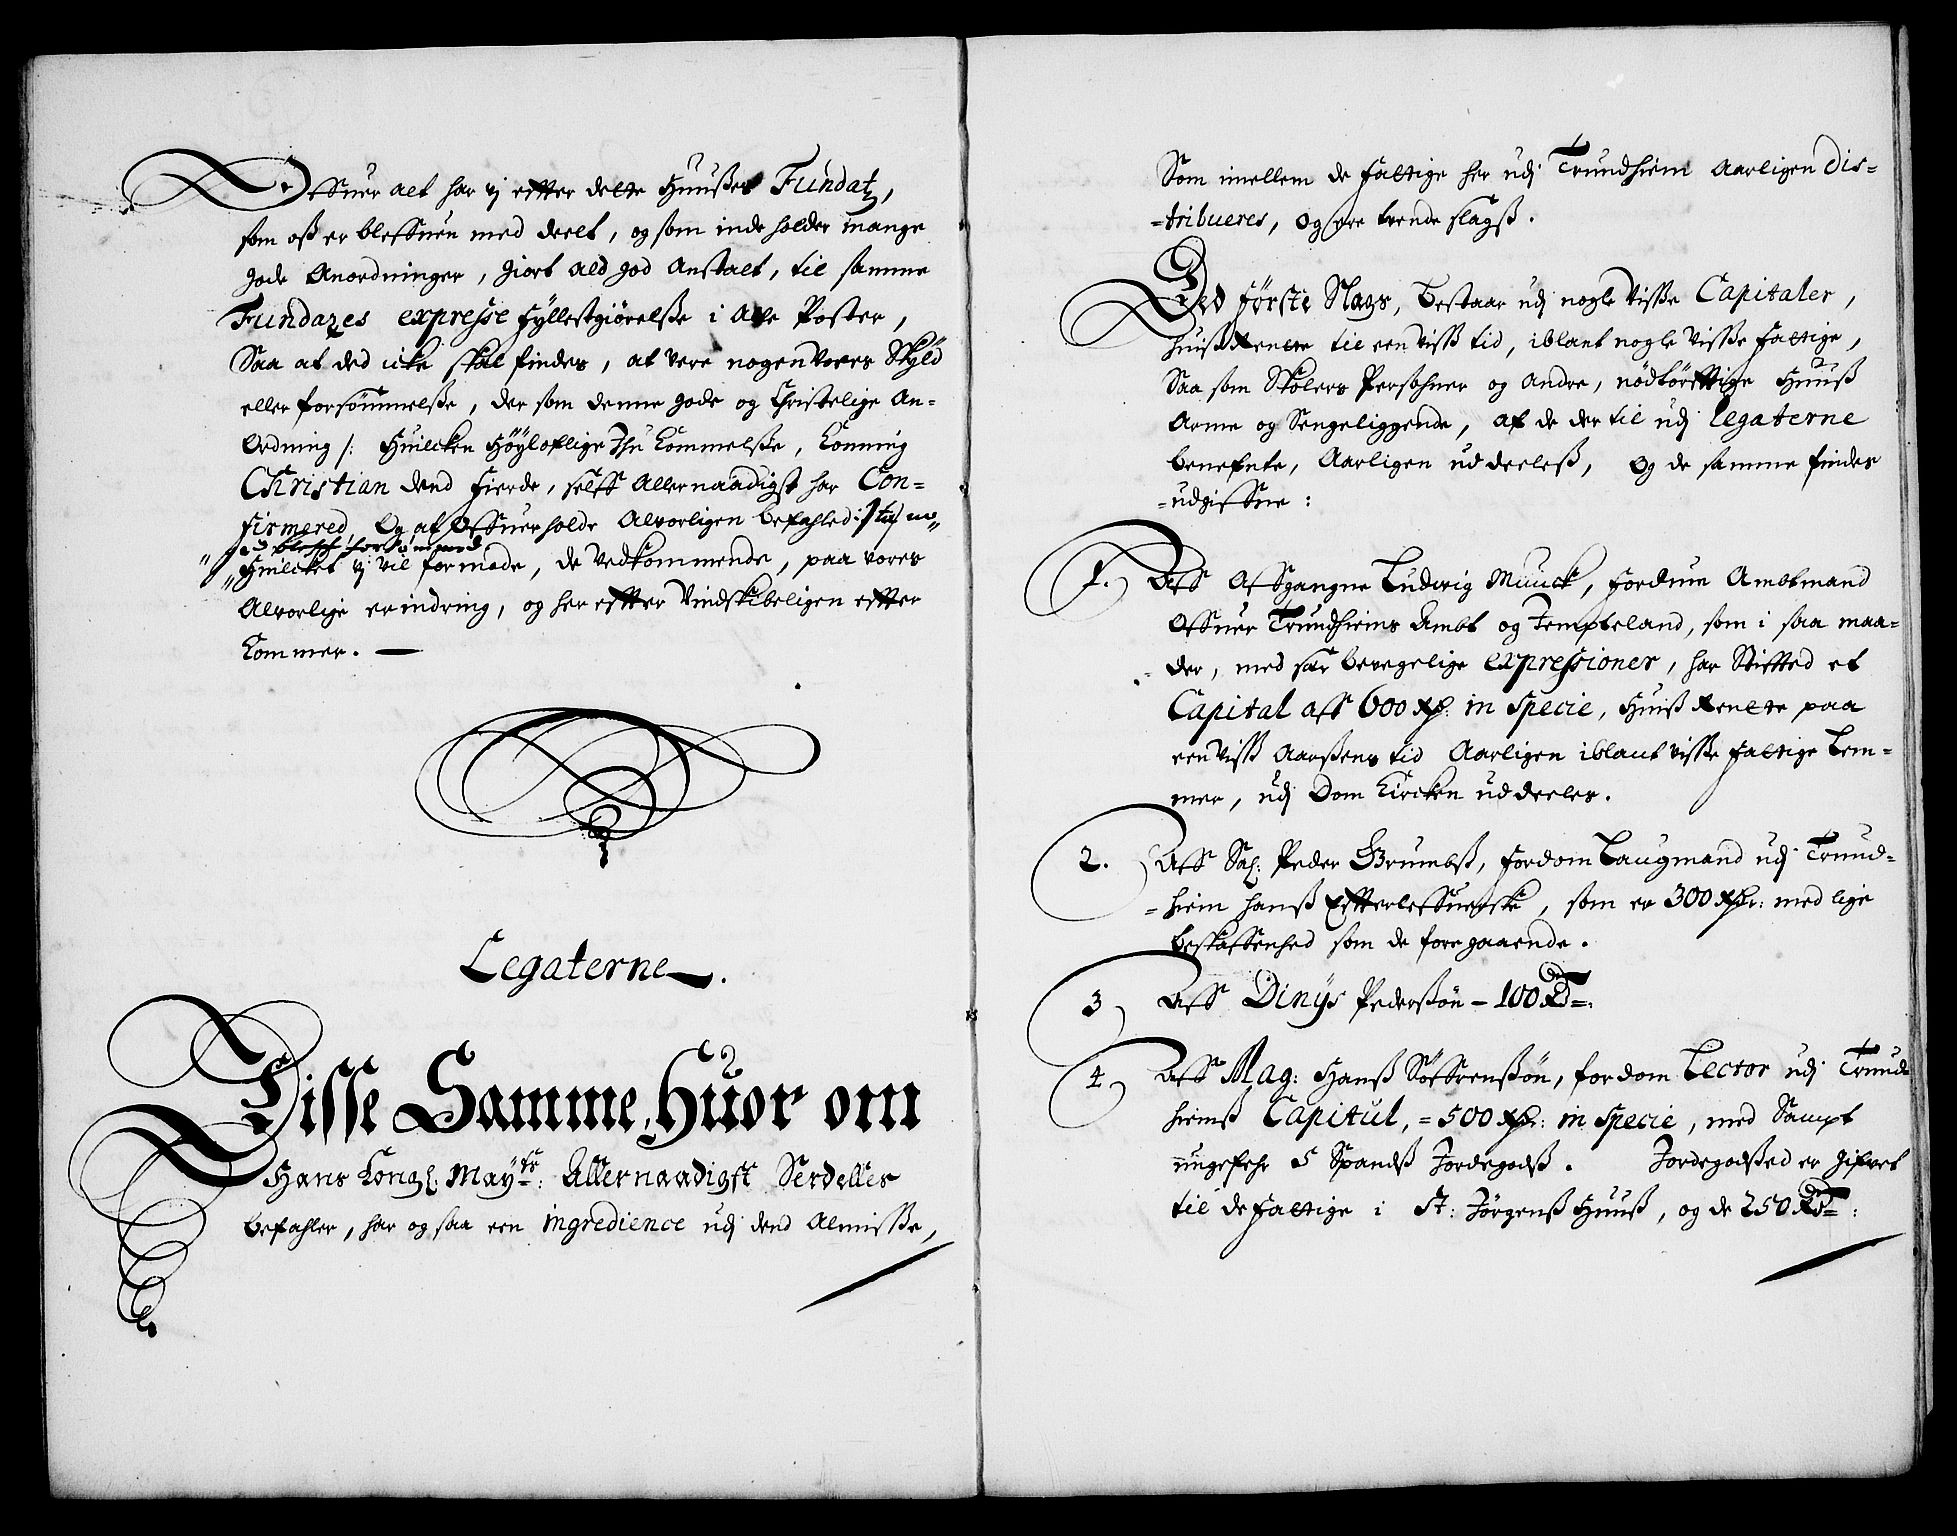 Offuer alt har vj effter dette Huußes Fundatz,
som oß er bleffuen med deelt, og som inde holder mange
gode Anordninger, giort ald god Anstalt, til samme
Fundazes expresse Fyllestgiörelße i Alle Poster,
Saa at ded icke skal findes, at vere nogen vores Skyld
eller forsömmelße, der som denne gode og Christelige An-
Ordning /: Huilcken Höyloflige Ihu Kommelße, Konning
Christian dend Fierde, selff Allernaadigst har Con-
firmered, Og at Offuerholde Alvorligen befahled :/
bleff forkommed
Huilcket vj vil formode, de vedkommende, paa vores
Alvorlige erindring, og her effter Vindskibeligen effter
Kommer. —
Legaterne.
Disse Samme, Huor om
Hans Kongl: Mayts: Allernaadigst Serdelles
befahler, har og saa een ingredience udj dend Almisse,
Som imellem de Fattige her udj Trundhiem Aarligen Dis-
-tribueres, Og ere tvende slagß.
Ded Förste Slags, bestaar udj nogle visse Capitaler,
huiß Rentte til een viß tid, iblant nogle visse Fattige,
Saa som Skolers Persohner og Andre, nödtörfftige Huuß
Arme og Sengeliggende, af de der til udj Legaterne
benefnte, Aarligen uddeeleß, Og de samme findes
-udgiffne:
1. Aff Affgangne Ludvig Munck, Fordum Ambtmand
Offuer Trundhiems Ambt og Jempteland, som i saa maa-
der, med sær bevegelige expressioner, har Stifted et
Capital aff 600 Rd: in specie, Huiß Rentte paa
een viß Aarßens tid Aarligen iblant visse Fattige Lem-
mer, udj Dom Kircken uddeeles.
2. Aff Sal: Peder Grumbß, Fordom Laugmand udj Trund-
-hiem hanß Effterleffuerske, som er 300 Rdr: med lige
beskaffenhed som de foregaaende.
3 Aff Dinys Pederßön – 100 Rdr:
4 Aff Mag: Hanß Söffrenßön, fordom Lector udj Trund
hiemß Capitul, = 500 Rdr: in specie, med Sampt
ungefehr 5 Spandß Jordegodß. Jordegodßed er gifvet
til de Fattige i St: Jörgenß Huuß, og de 250 Rdr: